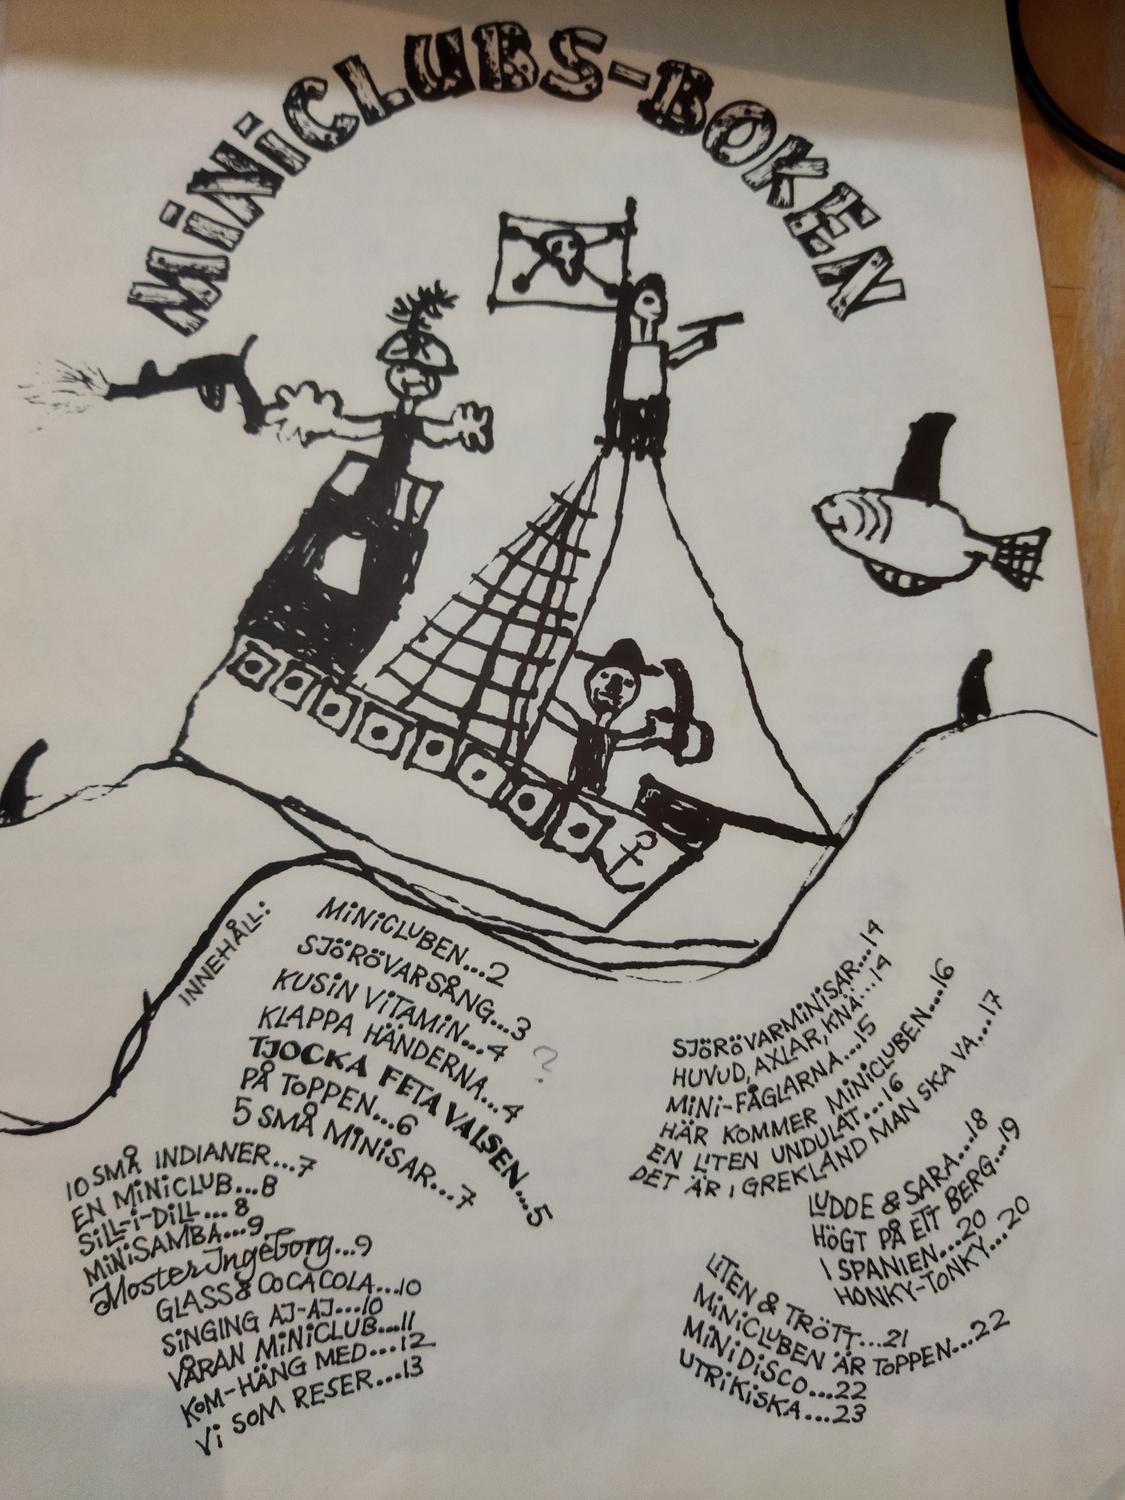 MiNiCLUBS-BOKEN
INNEHÅLL:
MiNiCLUBEN...2
SJÖRÖVARSÅNG...3
KUSiN ViTAMiN...4
KLAPPA HÄNDERNA...4
?
TJOCKA FETA VALSEN...5
PÅ TOPPEN...6
5 SMÅ MiNiSAR...7
10 SMÅ INDIANER...7
EN MiNiCLUB...8
SiLL-i-DiLL...8
MiNiSAMBA...9
Moster Ingeborg...9
GLASS & COCACOLA...10
SiNGING AJ-AJ...10
VÅRAN MiNiCLUB...11
KOM-HÄNG MED...12
Vi SOM RESER...13
SJÖRÖVARMiNiSAR...14
HUVUD, AXLAR, KNÄ...14
MiNi-FÅGLARNA...15
HÄR KOMMER MiNiCLUBEN...16
EN LiTEN UNDULAT...16
DET ÄR i GREKLAND MAN SKA VA...17
LUDDE & SARA...18
HÖGT PÅ ETT BERG...19
I SPANIEN...20
HONKY-TONKY...20
LiTEN & TRÖTT...21
MiNiCLUBEN ÄR TOPPEN...22
MiNiDiSCO...22
UTRiKiSKA...23